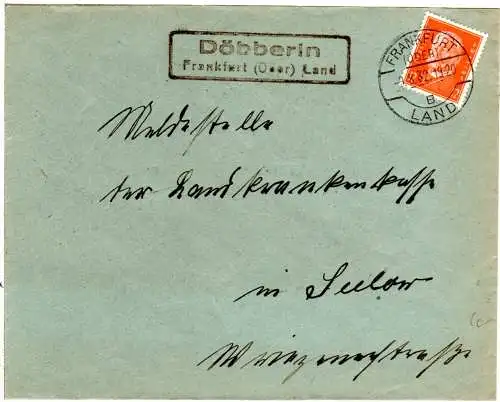 Döbberin
Frankfurt (Oder) Land
FRANKFURT
(ODER)
32.19-20
B
LAND
Meldestelle
der Landkrankenkasse
in Seelow